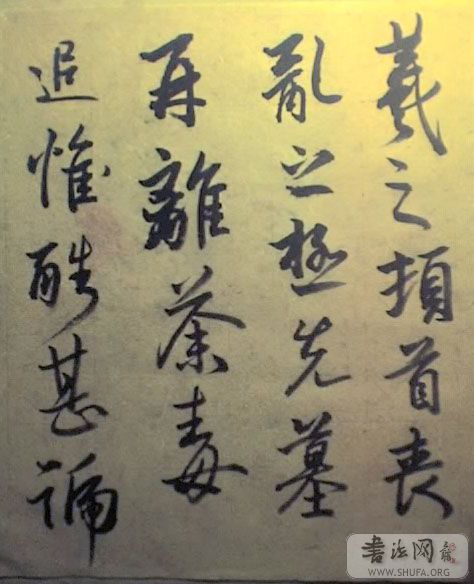 羲之頓首喪
亂之極先墓
再離荼毒
追惟酷甚號
書法网
WWW.SHUFA.ORG